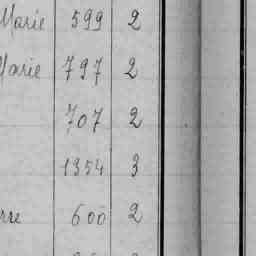 Marie 599 2
Marie 797 2
707 2
1354 3
600 2